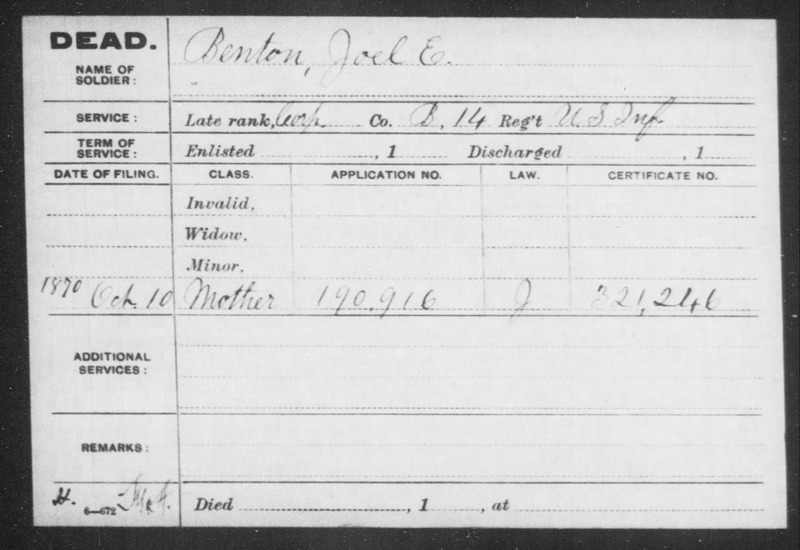 DEAD.
NAME OF SOLDIER: Benton, Joel E.
SERVICE: Late rank, Corp Co. B, 14 Reg't U S Inf
TERM OF SERVICE: Enlisted , 1 Discharged , 1
DATE OF FILING. CLASS. APPLICATION NO. LAW. CERTIFICATE NO.
Invalid,
Widow,
Minor,
1870 Oct. 10 Mother 190,916 J 321,246
ADDITIONAL SERVICES:
REMARKS:
6—672 Died , 1 , at